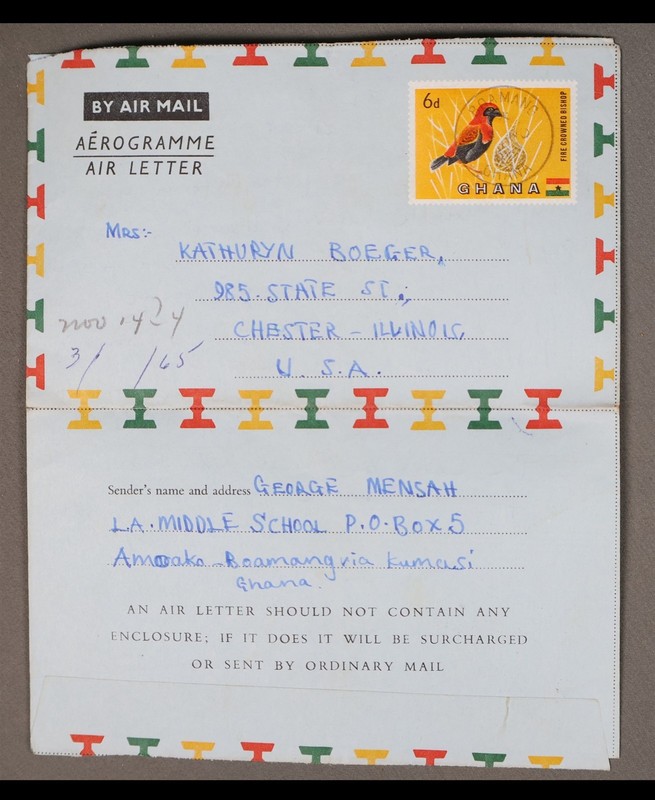 BY AIR MAIL
AÉROGRAMME
AIR LETTER
6d
FIRE CROWNED BISHOP
GHANA
Mrs:-
KATHURYN BOEGER,
985. STATE ST.,
CHESTER - ILLINOIS,
U. S. A.
3/ /65
Sender's name and address GEORGE MENSAH
L.A. MIDDLE SCHOOL P.O. BOX 5
Amoako - Boamang via Kumasi
Ghana.
AN AIR LETTER SHOULD NOT CONTAIN ANY
ENCLOSURE; IF IT DOES IT WILL BE SURCHARGED
OR SENT BY ORDINARY MAIL